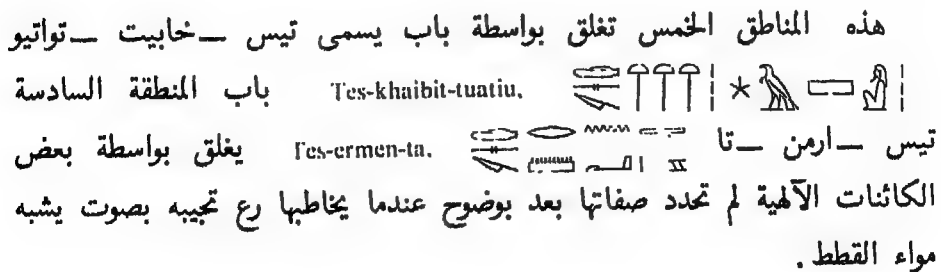 هذه المناطق الخمس تغلق بواسطة باب يسمى تيس — خابيت — تواتيو
Tes-khaibit-tuatiu. باب المنطقة السادسة
تيس — ارمن — تا Tes-ermen-ta. يغلق بواسطة بعض
الكائنات الآلهية لم تحدد صفاتها بعد بوضوح عندما يخاطبها رع تجيبه بصوت يشبه
مواء القطط .